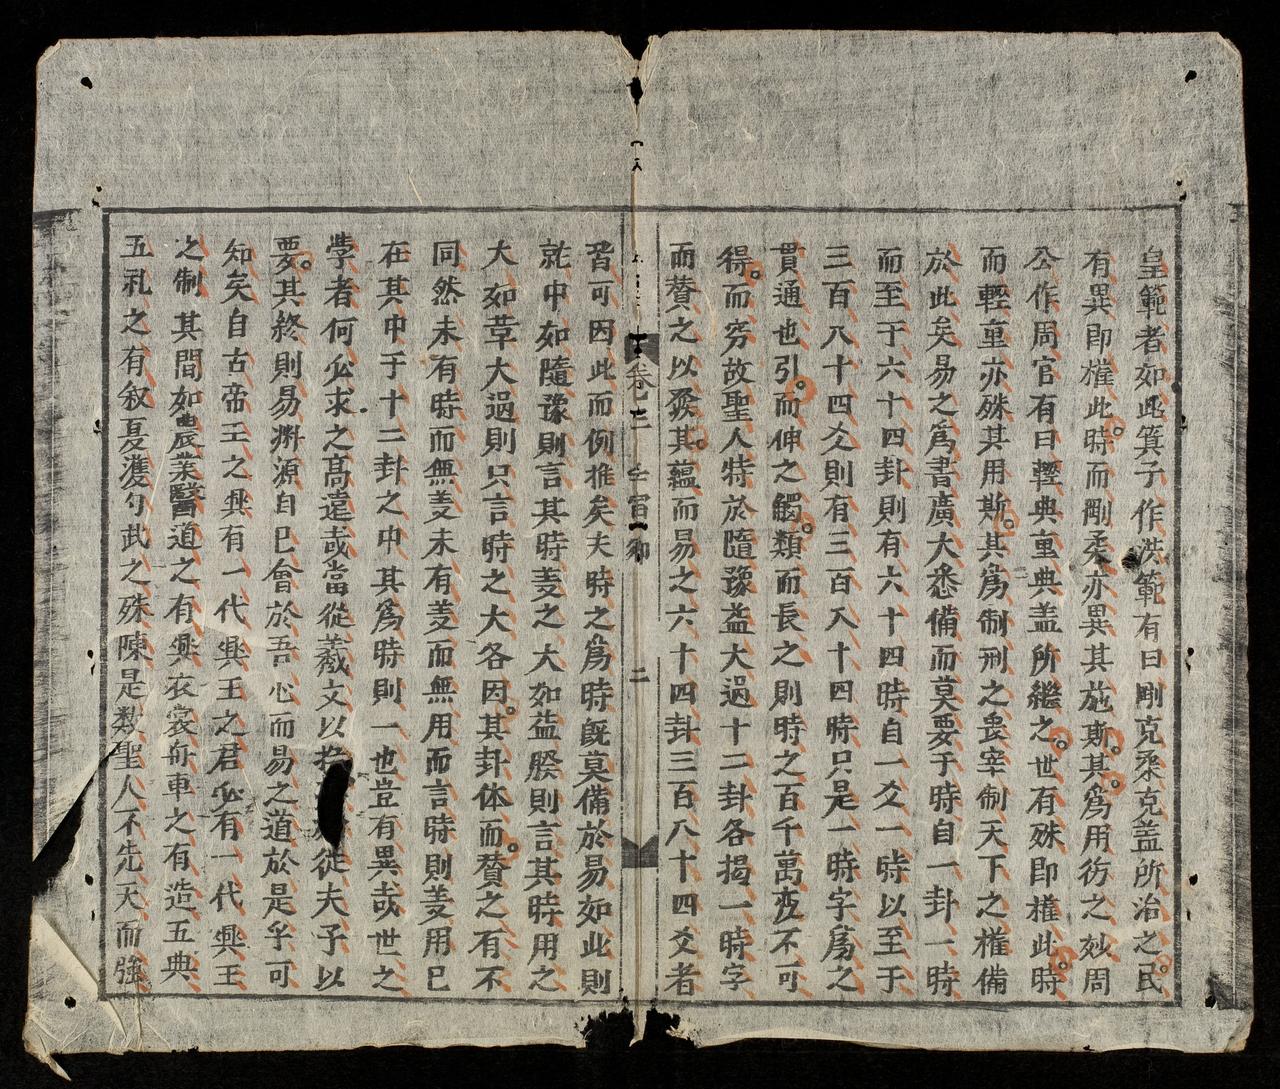 皇範者如此箕子作洪範有曰剛克柔克盖所治之民
有異即權此時而剛柔亦異其施斯其爲用彷之妙周
公作周官有曰輕典重典盖所繼之世有殊即權此時
而輕重亦殊其用斯其爲制刑之䘮宰制天下之權備
於此矣易之爲書廣大悉備而莫要于時自一卦一時
而至于六十四卦則有六十四時自一爻一時以至于
三百八十四爻則有三百八十四時只是一時字爲之
貫通也引而伸之觸類而長之則時之百千萬变不可
得而穷故聖人特於隨豫益大過十二卦各揭一時字
而賛之以發其蘊而易之六十四卦三百八十四爻者
卷之三
二
皆可因此而例推矣夫時之爲時旣莫備於易如此則
就中如隨豫則言其時义之大如益睽則言其時用之
大如革大過則只言時之大各因其卦体而賛之有不
同然未有時而無义未有义而無用而言時則义用已
在其中于十二卦之中其爲時則一也豈有異㢤世之
學者何必求之髙遠㢤當從羲文以 從夫子以
要其終則易渊源自已會於吾心而易之道於是乎可
知矣自古帝王之興有一代興王之君必有一代興王
之制其間如農業醫道之有興衣裳舟車之有造五典
五礼之有叙夏濩勺武之殊陳是数聖人不先天而強